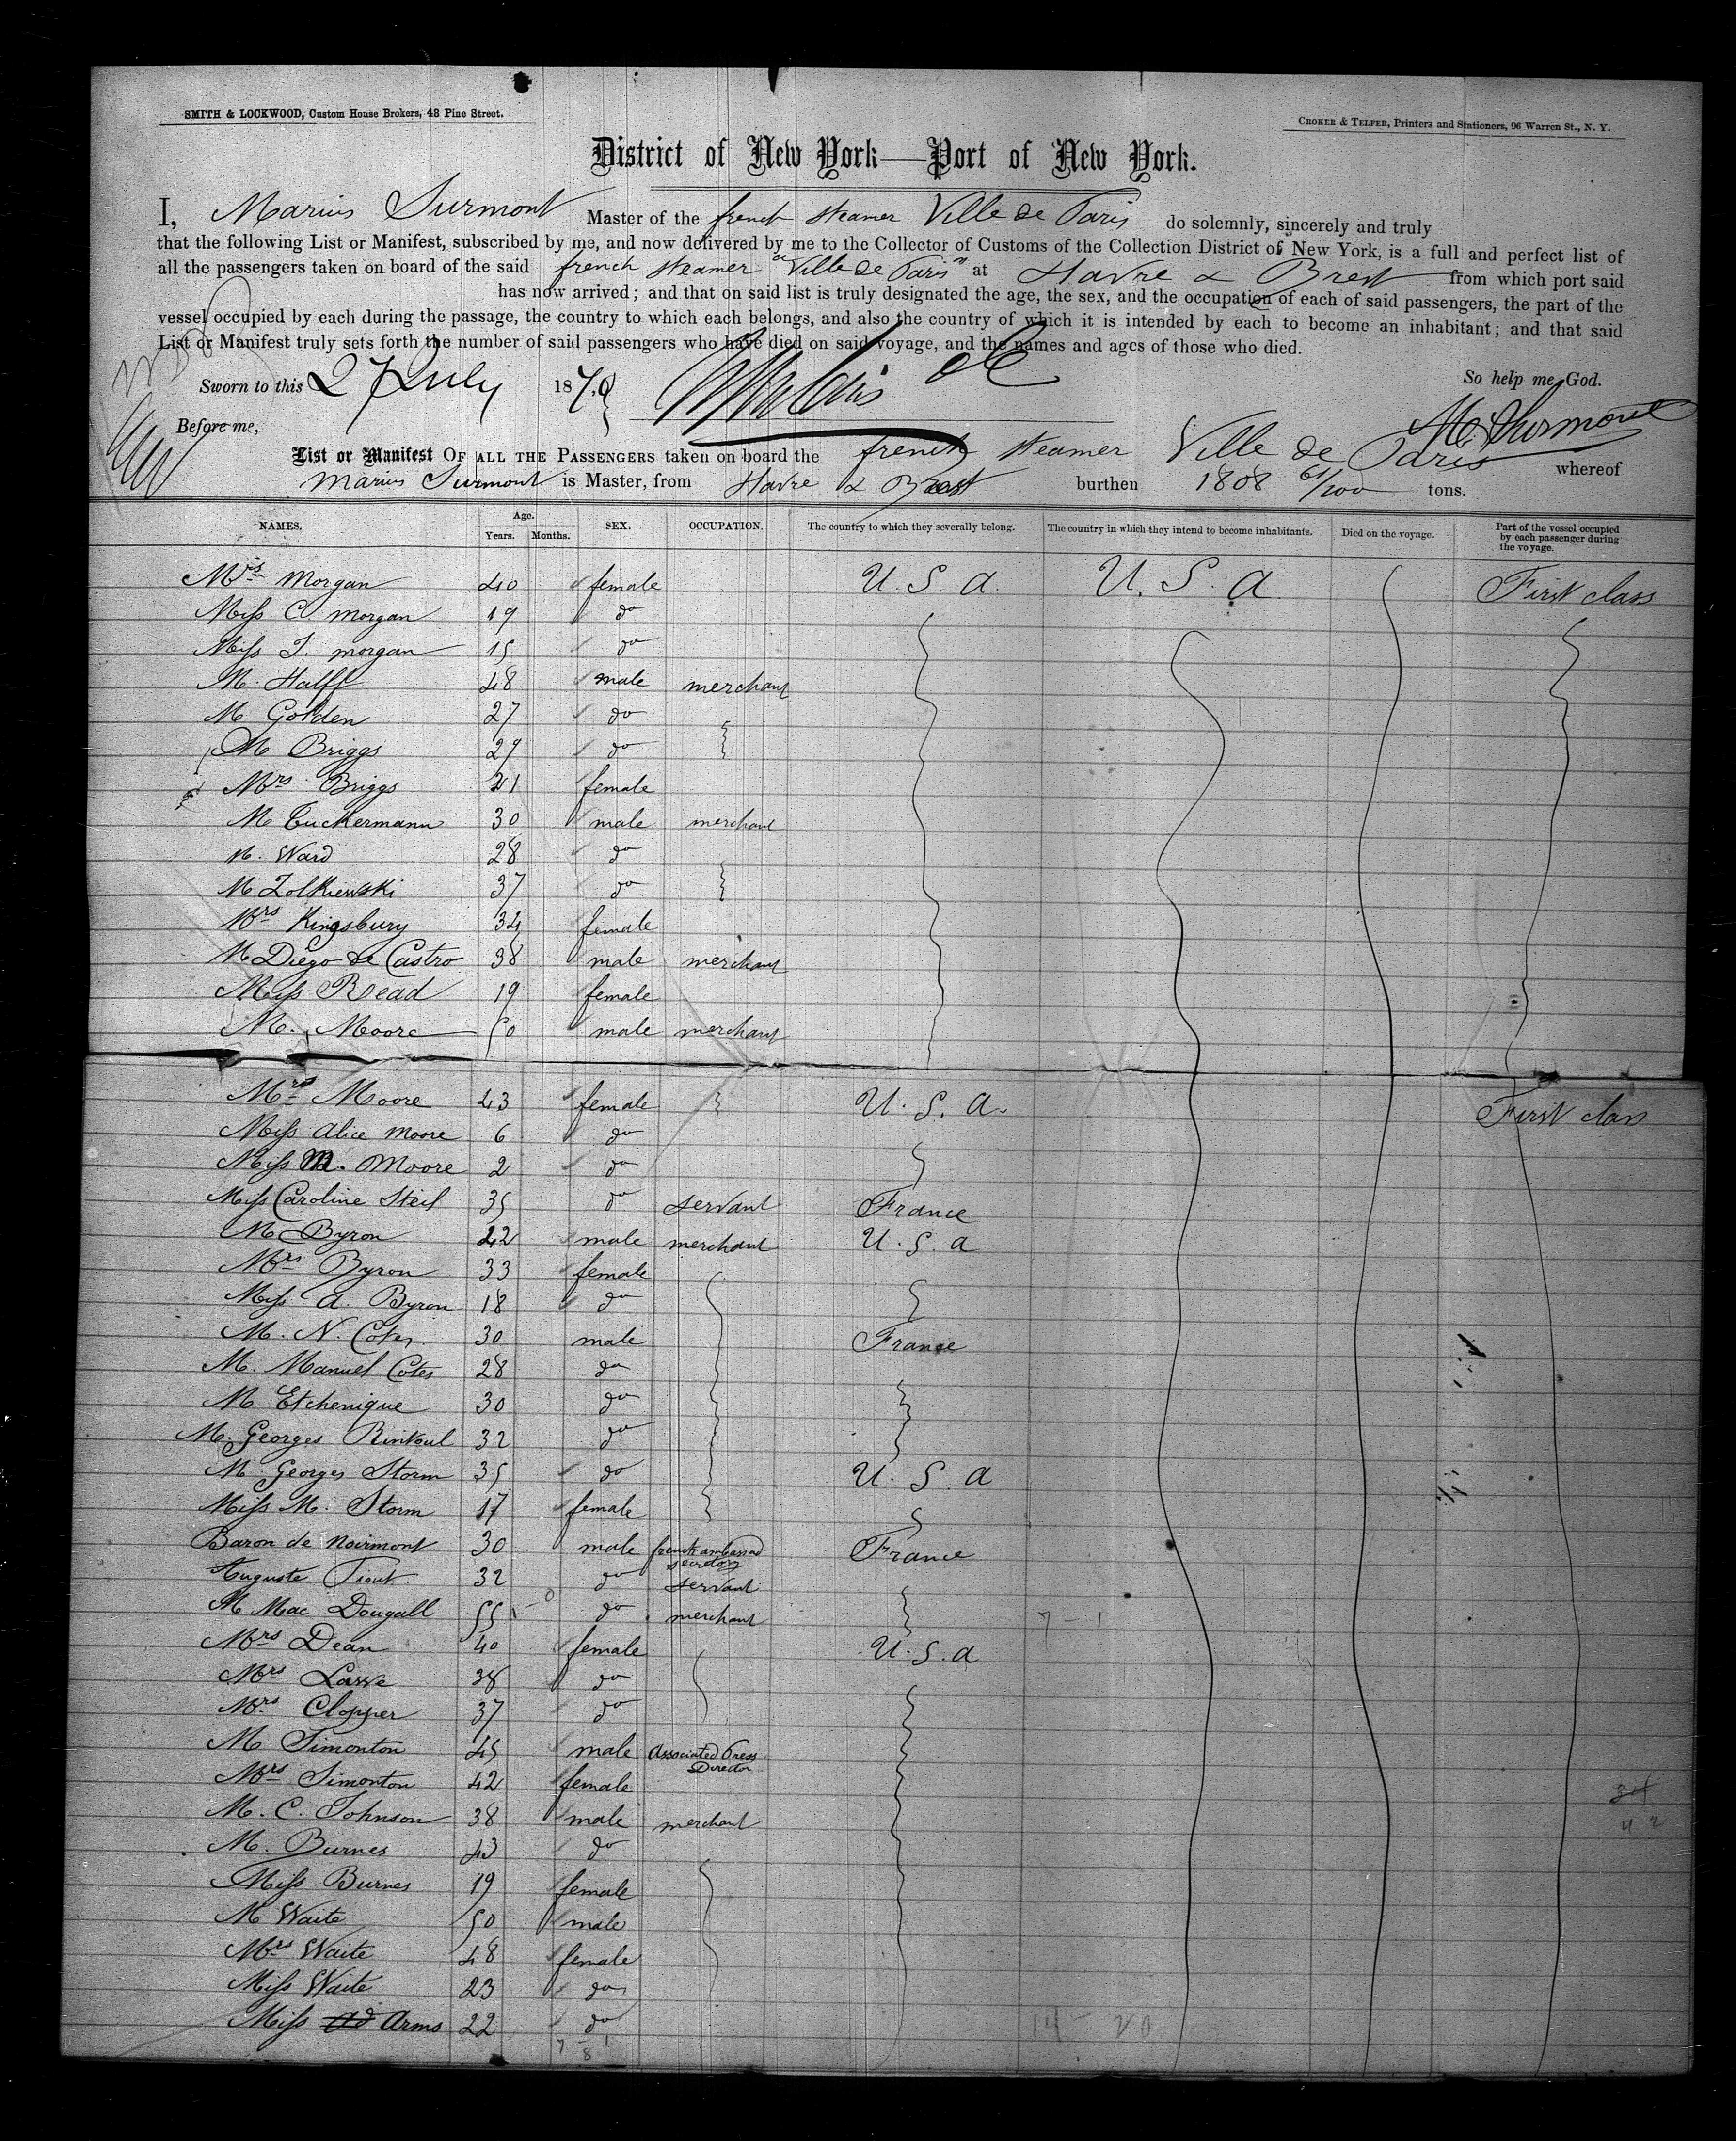 SMITH & LOCKWOOD, Custom House Brokers, 48 Pine Street.
CROKER & TELFER, Printers and Stationers, 96 Warren St., N. Y.
District of New York—Port of New York.
I, Marius Surmont Master of the french steamer Ville de Paris do solemnly, sincerely and truly
that the following List or Manifest, subscribed by me, and now delivered by me to the Collector of Customs of the Collection District of New York, is a full and perfect list of
all the passengers taken on board of the said french steamer "Ville de Paris" at Havre & Brest from which port said
has now arrived; and that on said list is truly designated the age, the sex, and the occupation of each of said passengers, the part of the
vessel occupied by each during the passage, the country to which each belongs, and also the country of which it is intended by each to become an inhabitant; and that said
List or Manifest truly sets forth the number of said passengers who have died on said voyage, and the names and ages of those who died.
Sworn to this 27 July 1870 So help me God.
Before me, M. Surmont
List or Manifest OF ALL THE PASSENGERS taken on board the french steamer Ville de Paris whereof
Marius Surmont is Master, from Havre & Brest burthen 1808 61/100 tons.
NAMES. Age. Years. Months. SEX. OCCUPATION. The country to which they severally belong. The country in which they intend to become inhabitants. Died on the voyage. Part of the vessel occupied by each passenger during the voyage.
Mrs Morgan 40 female U.S.a. U.S.a First class
Miss C. morgan 19 do
Miss J. morgan 15 do
M. Halff 48 male merchant
M Golden 27 do
M Briggs 29 do
Mrs Briggs 21 female
M Tuckermann 30 male merchant
M. Ward 28 do
M Zolkiewski 37 do
Mrs Kingsbury 34 female
M Diego de Castro 38 male merchant
Miss Read 19 female
M. Moore 50 male merchant
Mrs Moore 43 female U.S.a. First class
Miss alice moore 6 do
Miss M. Moore 2 do
Miss Caroline Steil 35 do servant France
M Byron 42 male merchant U.S.a
Mrs Byron 33 female
Miss a. Byron 18 do
M. N. Cotes 30 male France
M. Manuel Cotes 28 do
M Etchenique 30 do
M. Georges Rintoul 32 do
M. Georges Storm 35 do U.S.a
Miss M. Storm 17 female
Baron de noirmont 30 male french ambassad secretary France
Auguste 32 do servant
M Mac Dougall 55 do merchant 7 - 1
Mrs Dean 40 female U.S.a
Mrs 38 do
Mrs Clopper 37 do
M Simonton 45 male associated Press Director
Mrs Simonton 42 female
M. C. Johnson 38 male merchant
M. Burnes 43 do
Miss Burnes 19 female
M Waite 50 male
Mrs Waite 48 female
Miss Waite 23 do
Miss Arms 22 do
14 20